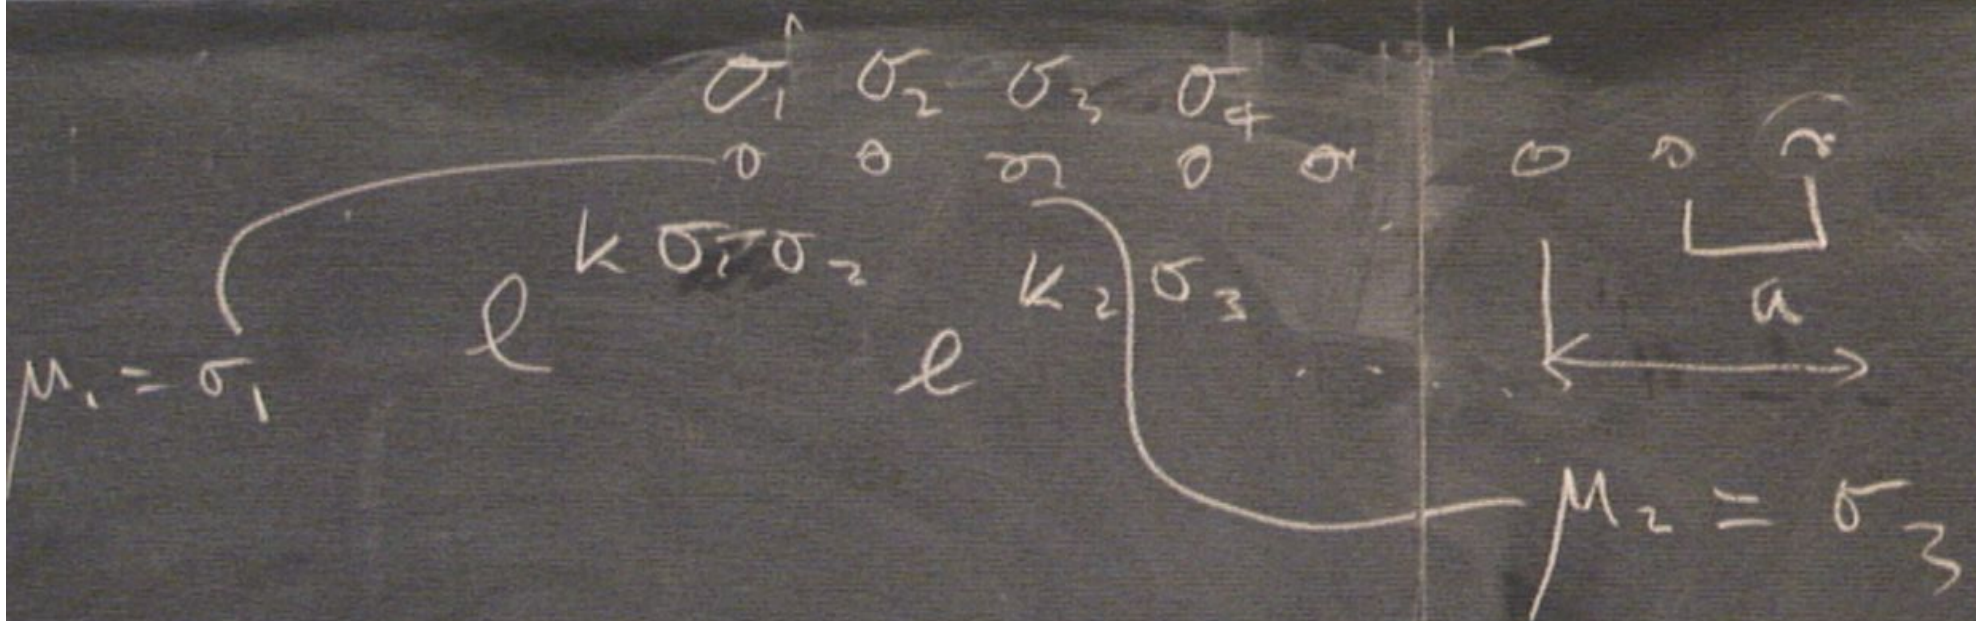 σ₁ σ₂ σ₃ σ₄
k σ₁ σ₂ k₂ σ₃
e e a
μ₁ = σ₁
μ₂ = σ₃